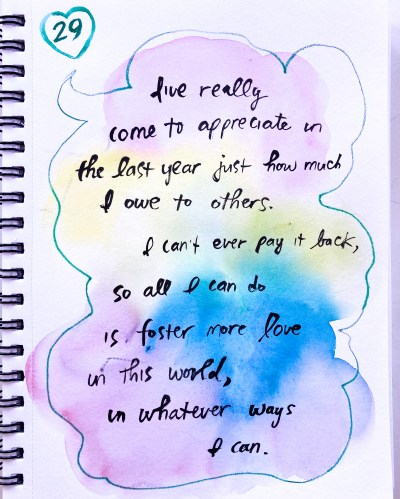 29
I've really
come to appreciate in
the last year just how much
I owe to others.
I can't ever pay it back,
so all I can do
is foster more love
in this world,
in whatever ways
I can.